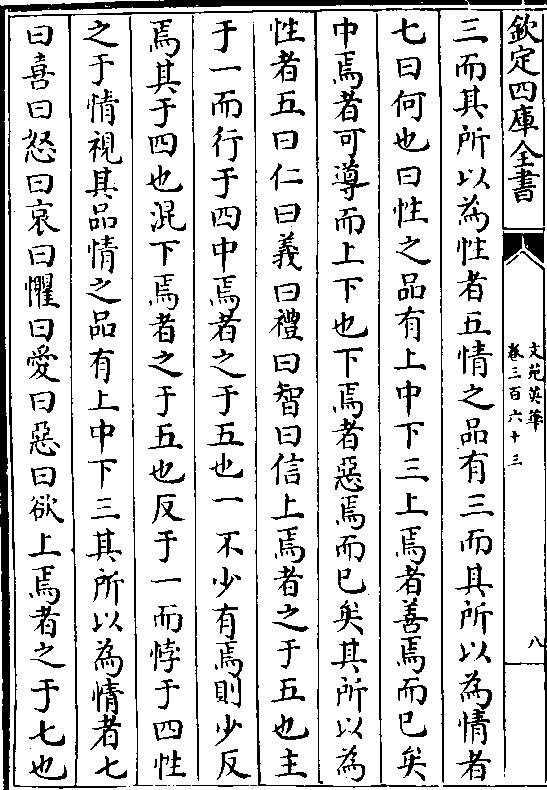 欽定四庫全書
文苑英華
卷三百六十三
八
三而其所以為性者五情之品有三而其所以為情者
七曰何也曰性之品有上中下三上焉者善焉而已矣
中焉者可導而上下也下焉者惡焉而已矣其所以為
性者五曰仁曰義曰禮曰智曰信上焉者之于五也主
于一而行于四中焉者之于五也一 不少有焉則少反
焉其于四也混下焉者之于五也反于一而悖于四性
之于情視其品情之品有上中下三其所以為情者七
曰喜曰怒曰哀曰懼曰愛曰惡曰欲上焉者之于七也